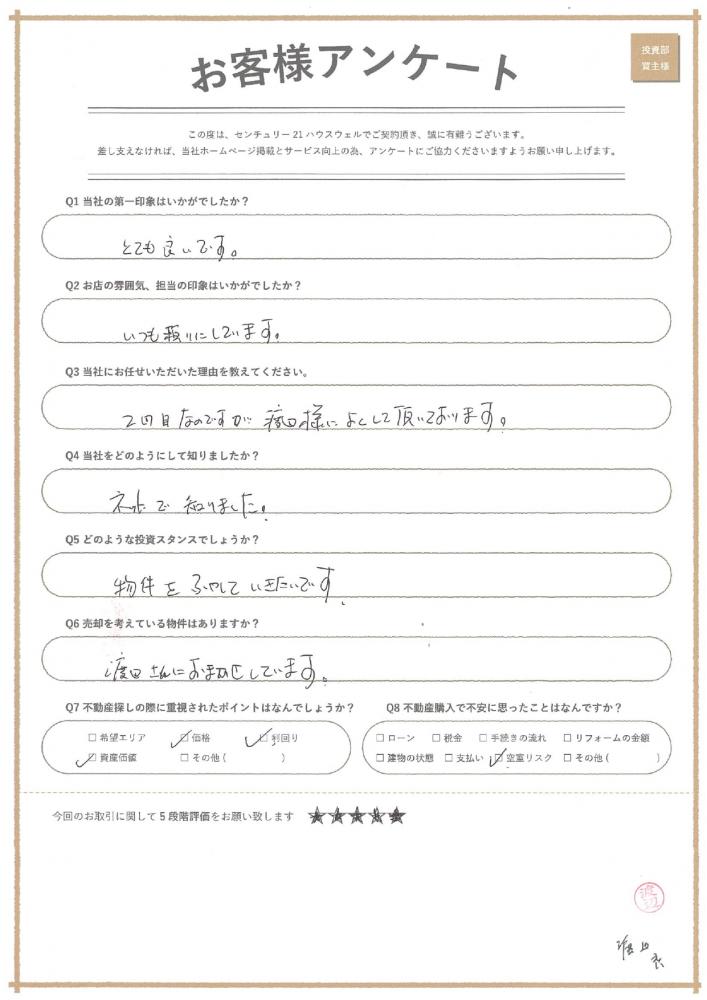 お客様アンケート
投資部
買主様
この度は、センチュリー21ハウスウェルでご契約頂き、誠に有難うございます。
差し支えなければ、当社ホームページ掲載とサービス向上の為、アンケートにご協力くださいますようお願い申し上げます。
Q1 当社の第一印象はいかがでしたか？
とても良いです。
Q2 お店の雰囲気、担当の印象はいかがでしたか？
いつも頼りにしています。
Q3 当社にお任せいただいた理由を教えてください。
2回目なのですが 様によくして頂いております。
Q4 当社をどのようにして知りましたか？
ネットで知りました。
Q5 どのような投資スタンスでしょうか？
物件をふやしていきたいです。
Q6 売却を考えている物件はありますか？
さんにおまかせしています。
Q7 不動産探しの際に重視されたポイントはなんでしょうか？
□ 希望エリア ☑ 価格 ☑ 利回り
☑ 資産価値 □ その他（ ）
Q8 不動産購入で不安に思ったことはなんですか？
□ ローン □ 税金 □ 手続きの流れ □ リフォームの金額
□ 建物の状態 □ 支払い ☑ 空室リスク □ その他（ ）
今回のお取引に関して5段階評価をお願い致します ★★★★★
渡辺